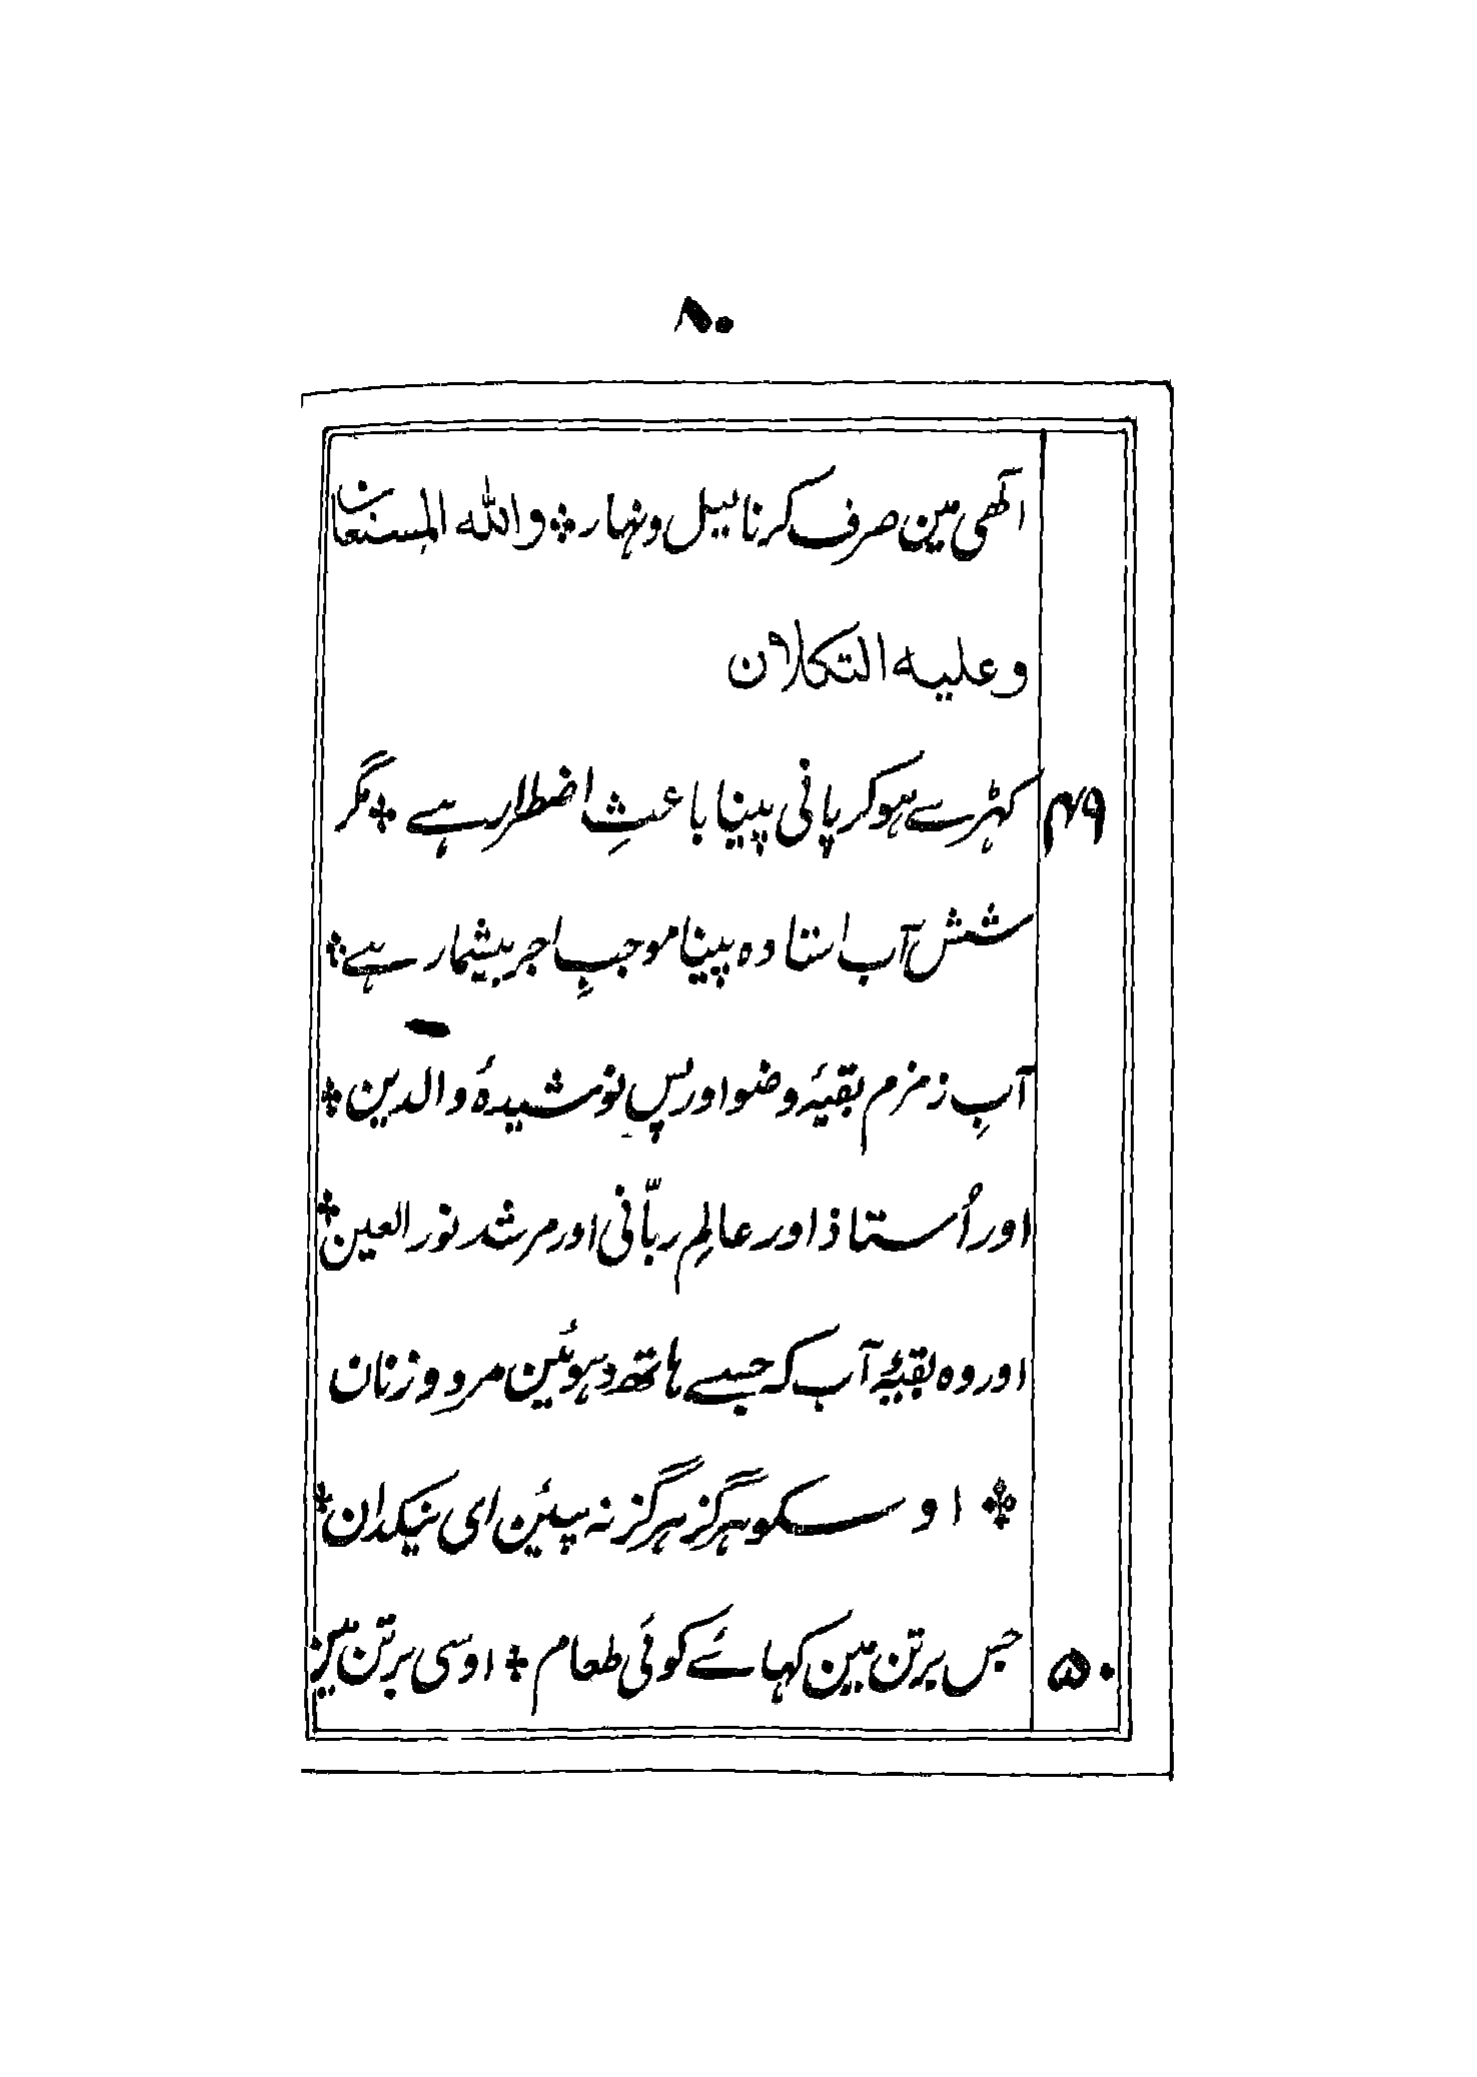 ۸۰
الٰهی مین صرف کرنا لیل ونہار ۞ والله المستعان
وعلیه التکلان
۴۹ کہڑے ہوکر پانی پینا باعثِ اضطرار ہے ۞ مگر
شش آب استادہ پینا موجبِ اجر بیشمار ہے ۞
آبِ زمزم بقیۂ وضو اور پس نوشیدۂ والدین ۞
اور اُستاذ اور عالمِ ربّانی اور مرشد نور العین ۞
اور وہ بقیۂ آب کہ جسے ہاتھ دہوئین مرد و زنان
۞ اوسکو ہرگز ہرگز نہ پیئین ای نیکدان ۞
۵۰ جس برتن مین کہائے کوئی طعام ۞ اوسی برتن مین